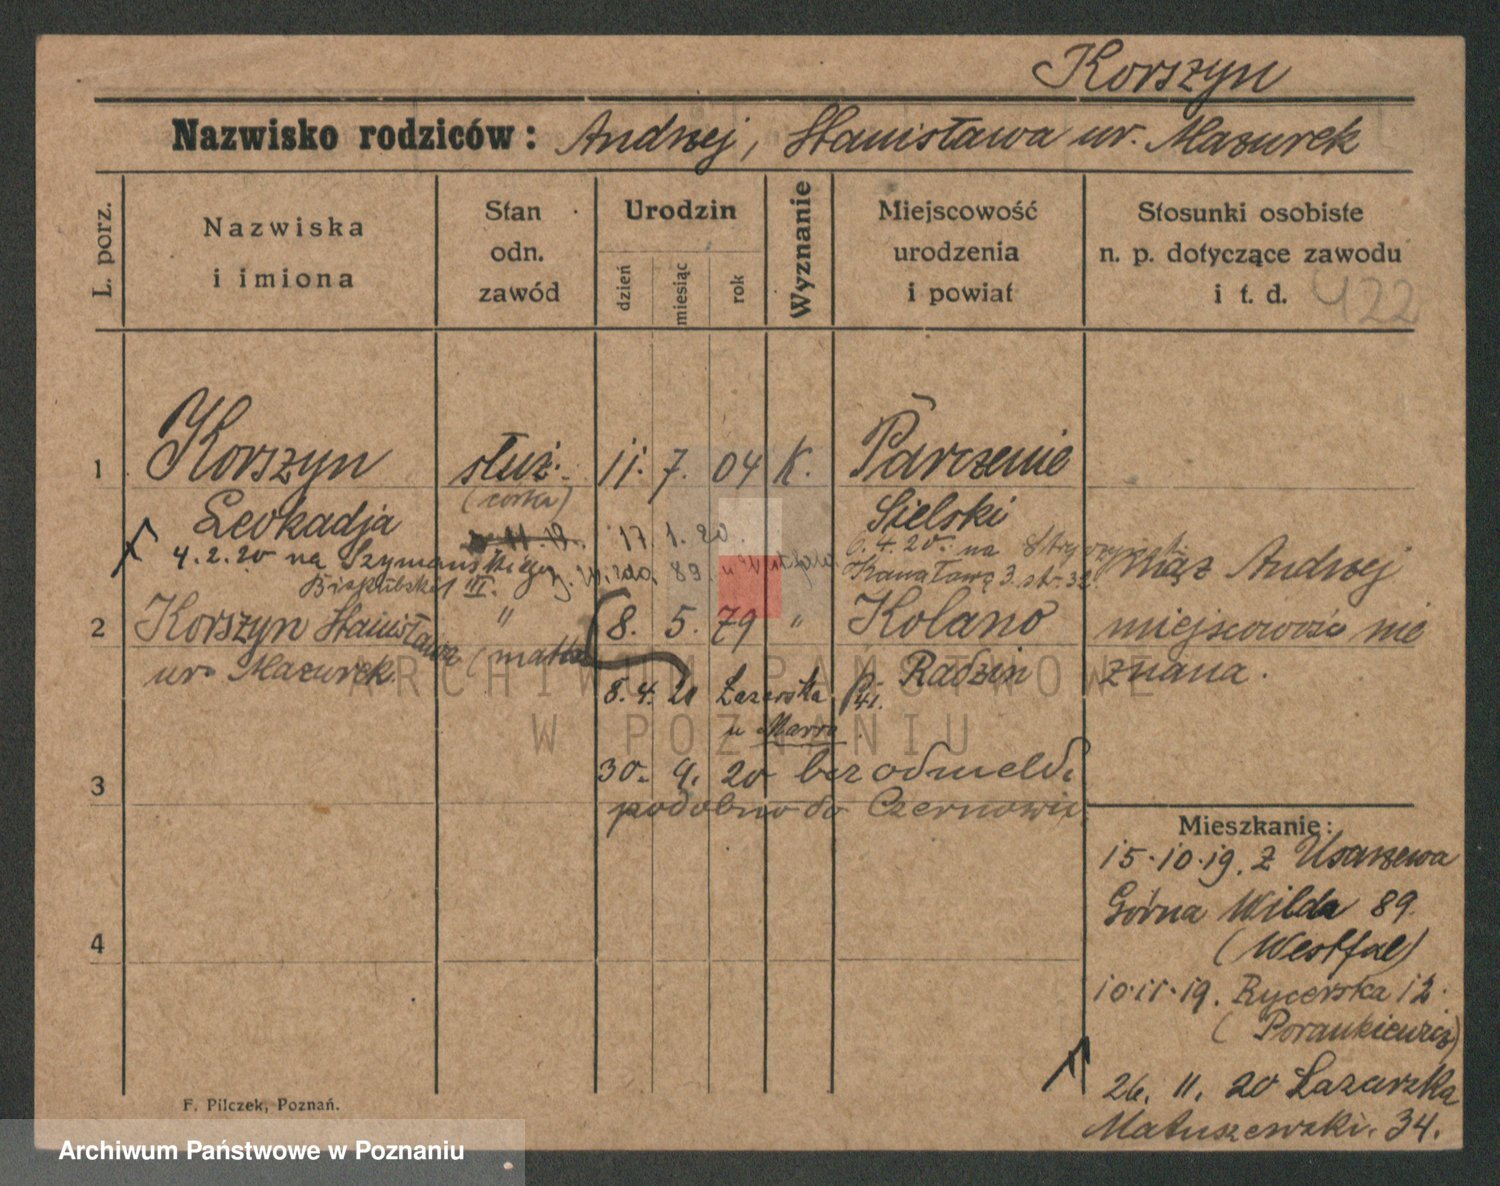 Korszyn
Nazwisko rodziców: Andrzej, Stanisława ur. Mazurek
L. porz.
Nazwiska
i imiona
Stan
odn.
zawód
Urodzin
dzień
miesiąc
rok
Wyznanie
Miejscowość
urodzenia
i powiat
Stosunki osobiste
n. p. dotyczące zawodu
i t. d.
422
1 Korszyn służ. 11. 7. 04 K. Parczenie
(córka)
Leokadja Sielski
17. 1. 20.
4.2.20 na Szymańskiego
6.4.20. na
89.
Kanałową 3. str. 32.
III.
mąż Andrzej
2 Korszyn Stanisława " 8. 5. 79 " Kolano
miejscowość nie
ur. Mazurek (matka) Radzin
znana.
8. 4. 20 Łazarska
u Marra
3 30. 9. 20 bez odmeld.
podobno do
4
Mieszkanie:
15.10.19. z
Górna Wilda 89.
(Westfal)
10.11.19. Rycerska 12.
(Porankiewicz)
26. 11. 20 Łazarska
Matuszewski. 34.
F. Pilczek, Poznań.
ARCHIWUM PAŃSTWOWE
W POZNANIU
Archiwum Państwowe w Poznaniu